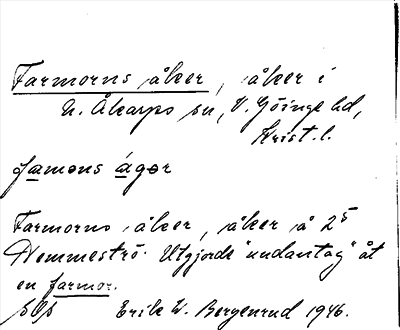 Farmorns åker, åker i
N. Åkarps sn, V. Göinge hd,
Krist. l.
famons ágər
Farmorns åker, åker å 2⁵
Nemmeströ. Utgjorde "undantag" åt
en farmor.
Erik W. Bergenrud 1946.